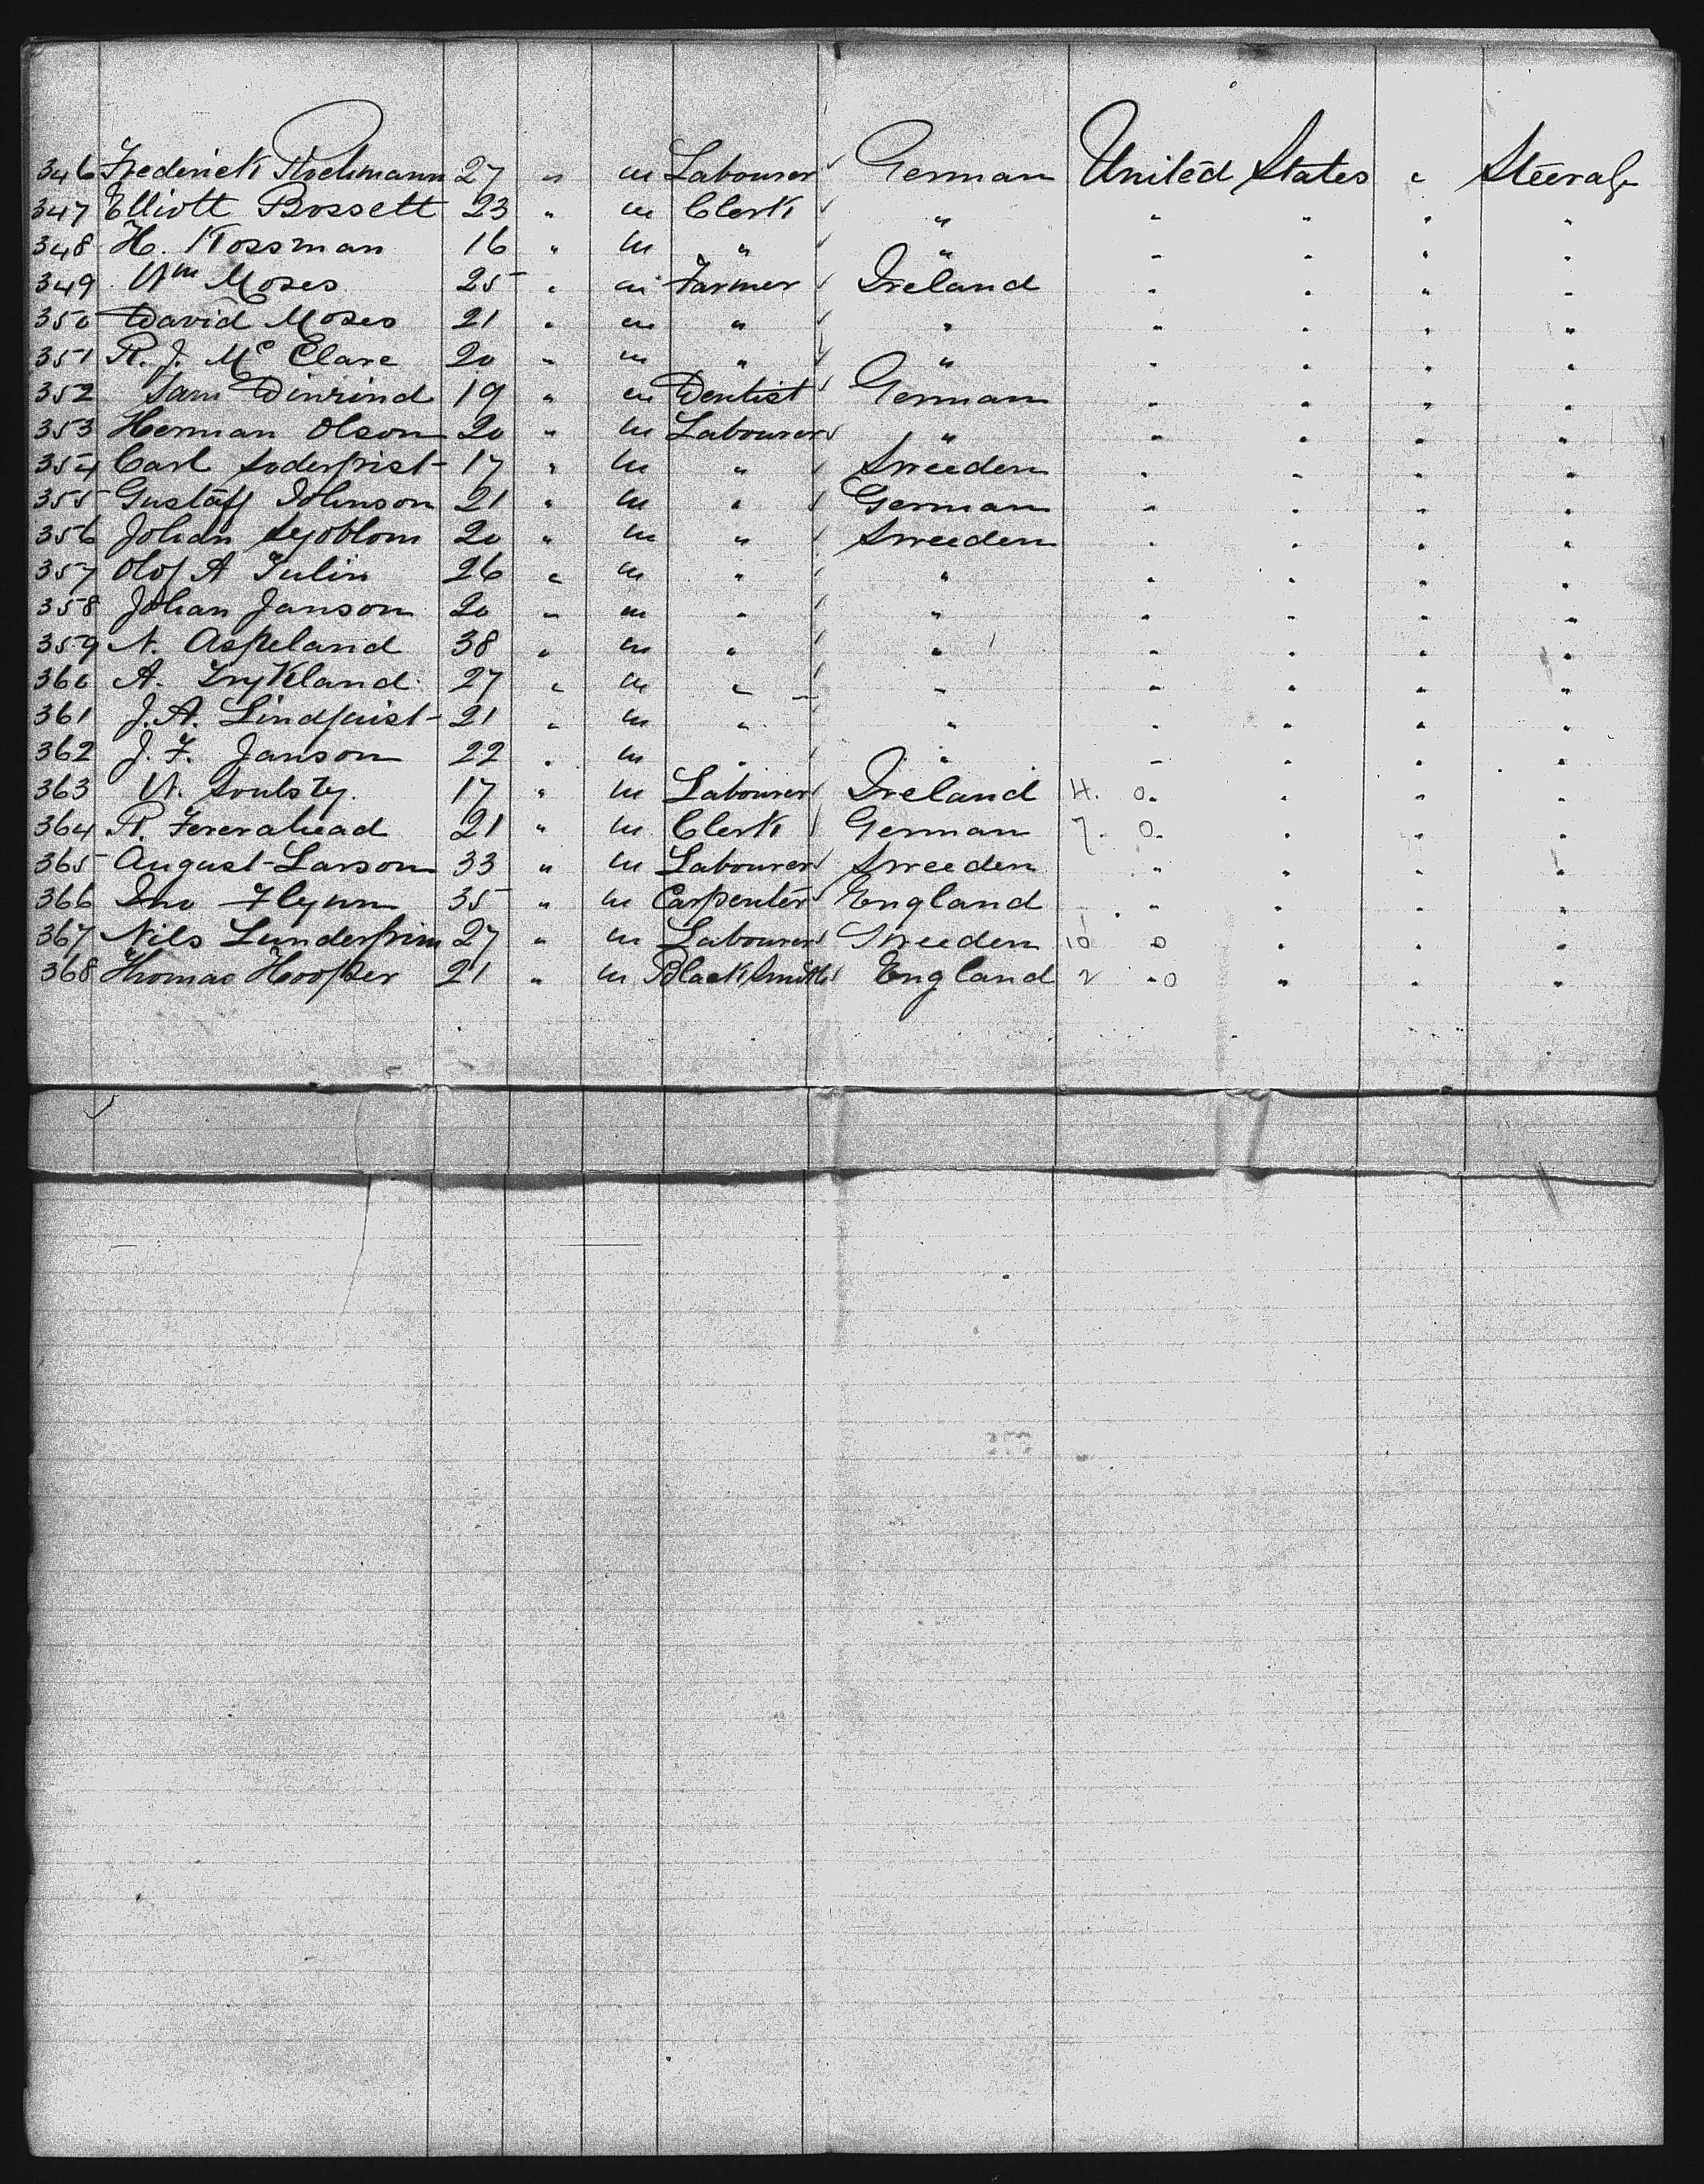 346 Frederick Rochmann 27 " m Labourer German United States " Steerage
347 Elliott Bossett 23 " m Clerk " " " " "
348 H. Kossman 16 " m " " " " " "
349 Wm Moses 25 " m Farmer Ireland " " " "
350 David Moses 21 " m " " " " " "
351 R. J. Mc Clare 20 " m " " " " " "
352 Sam 19 " m Dentist German " " " "
353 Herman Olson 20 " m Labourer " " " " "
354 Carl 17 " m " Sweeden " " " "
355 Gustaff Johnson 21 " m " German " " " "
356 Johan Syoblom 20 " m " Sweeden " " " "
357 Olof A Julin 26 " m " " " " " "
358 Johan Janson 20 " m " " " " " "
359 N. Aspeland 38 " m " " " " " "
360 A. 27 " m " " " " " "
361 J. A. Lindquist 21 " m " " " " " "
362 J. F. Janson 22 " m " " " " " "
363 W. Soulsty 17 " m Labourer Ireland 4. 0. " " "
364 R. 21 " m Clerk German 7. 0. " " "
365 August Larson 33 " m Labourer Sweeden " " " "
366 Jno Flynn 35 " m Carpenter England " " " "
367 Nils 27 " m Labourer Sweeden 10 0 " " "
368 Thomas Hooper 21 " m BlackSmith England 2 " 0 " " "